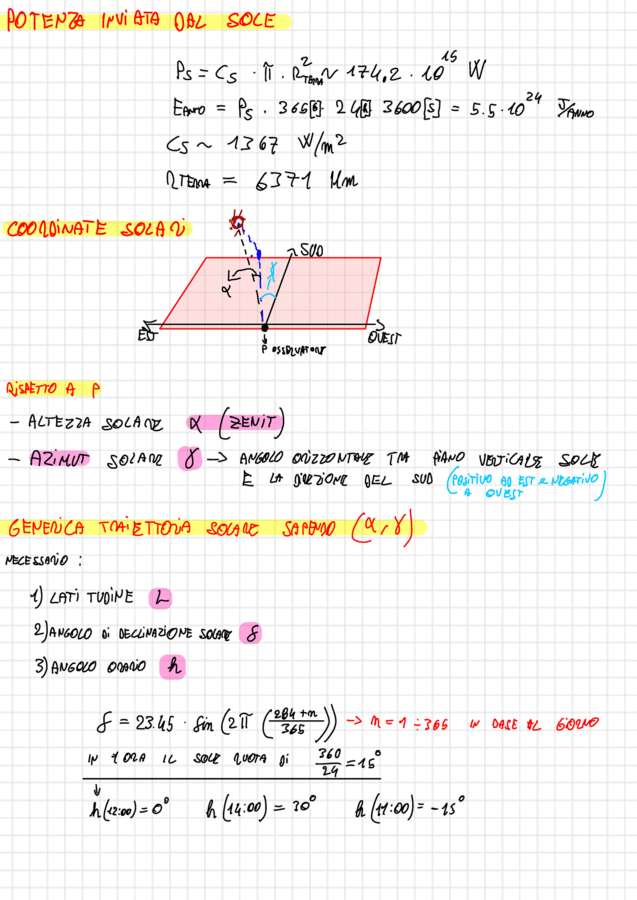 POTENZA INVIATA DAL SOLE
Ps = Cs · π · R²TERRA ~ 174,2 · 10^15 W
EANNO = Ps · 365[G] · 24[h] 3600[s] = 5.5 · 10^24 J/ANNO
Cs ~ 1367 W/m²
RTERRA = 6371 Km
COORDINATE SOLARI
SUD
α
γ
EST
OVEST
P OSSERVATORE
RISPETTO A P
- ALTEZZA SOLARE α (ZENIT)
- AZIMUT SOLARE γ → ANGOLO ORIZZONTALE TRA PIANO VERTICALE SOLE
E LA DIREZIONE DEL SUD (POSITIVO AD EST e NEGATIVO
A OVEST)
GENERICA TRAIETTORIA SOLARE SAPENDO (α, γ)
NECESSARIO :
1) LATITUDINE L
2) ANGOLO DI DECLINAZIONE SOLARE δ
3) ANGOLO ORARIO h
δ = 23.45 · sin (2π (284+n/365)) → n = 1 ÷ 365 IN BASE AL GIORNO
IN 1 ORA IL SOLE RUOTA DI 360/24 = 15°
↓
h(12:00) = 0° h(14:00) = 30° h(11:00) = -15°